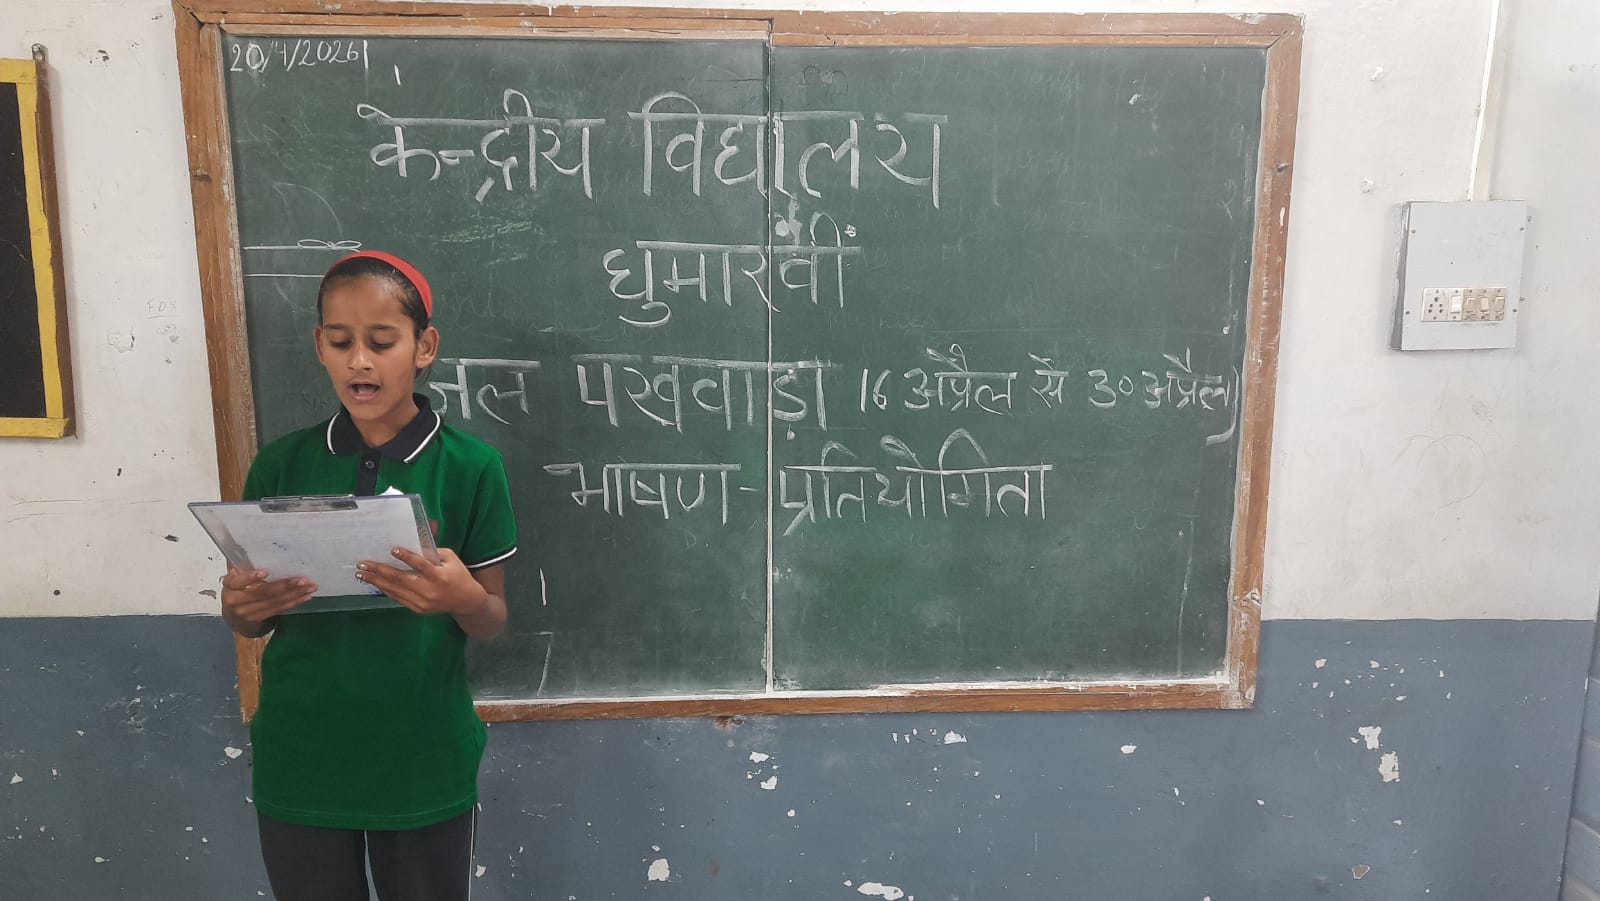 20/4/2026
केन्द्रीय विद्यालय
घुमारवीं
जल पखवाड़ा 16 अप्रैल से 30 अप्रैल)
भाषण - प्रतियोगिता
FOX